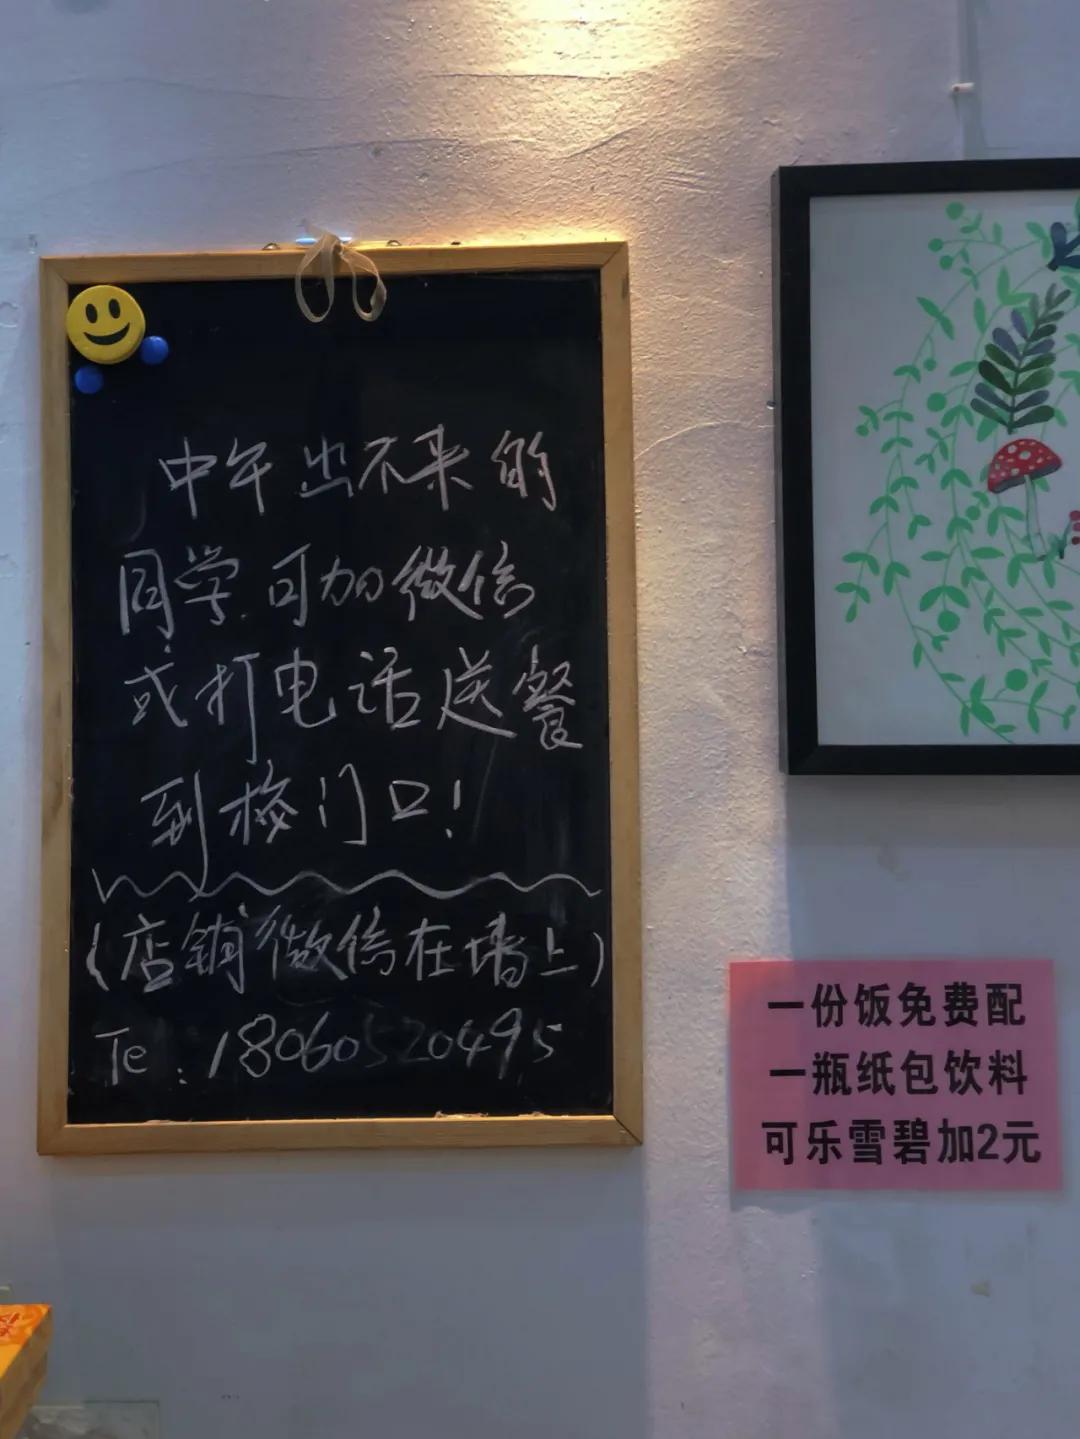 中午出不来的
同学可加微信
或打电话送餐
到校门口!
(店铺微信在墙上)
Te:18060520495
一份饭免费配
一瓶纸包饮料
可乐雪碧加2元